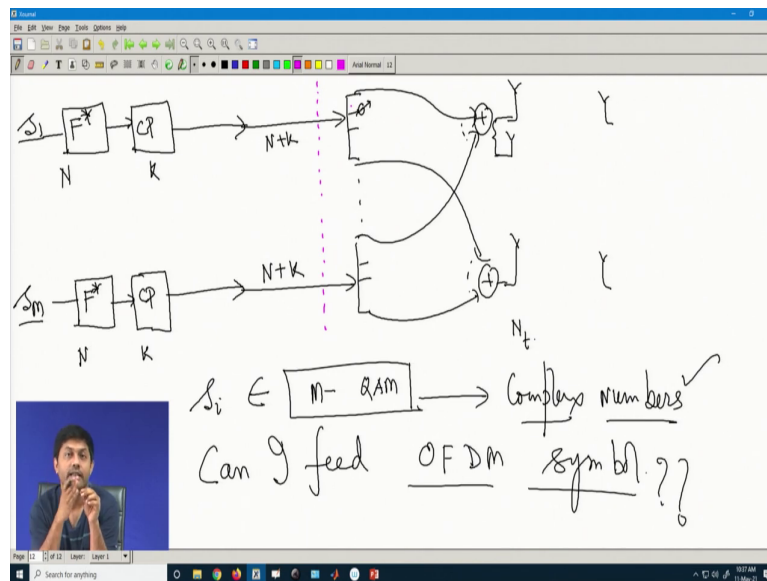 Xournal
File Edit View Page Tools Options Help
Arial Normal 12
S1 F* CP N+K + Y Y
N K Y
N+K
Sm F* CP + Y
N K Nt
Si ∈ M-QAM → Complex Numbers ✓
Can I feed OFDM symbol ??
Page 12 of 12 Layer: Layer 1
Search for anything
10:37 AM
11-May-21